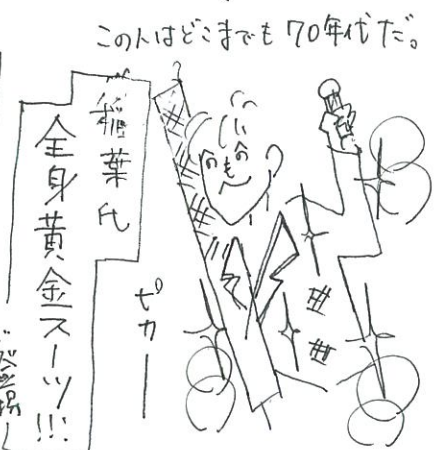 この人はどこまでも70年代だ。
稲葉氏
全身黄金スーツ!!!
ピカー